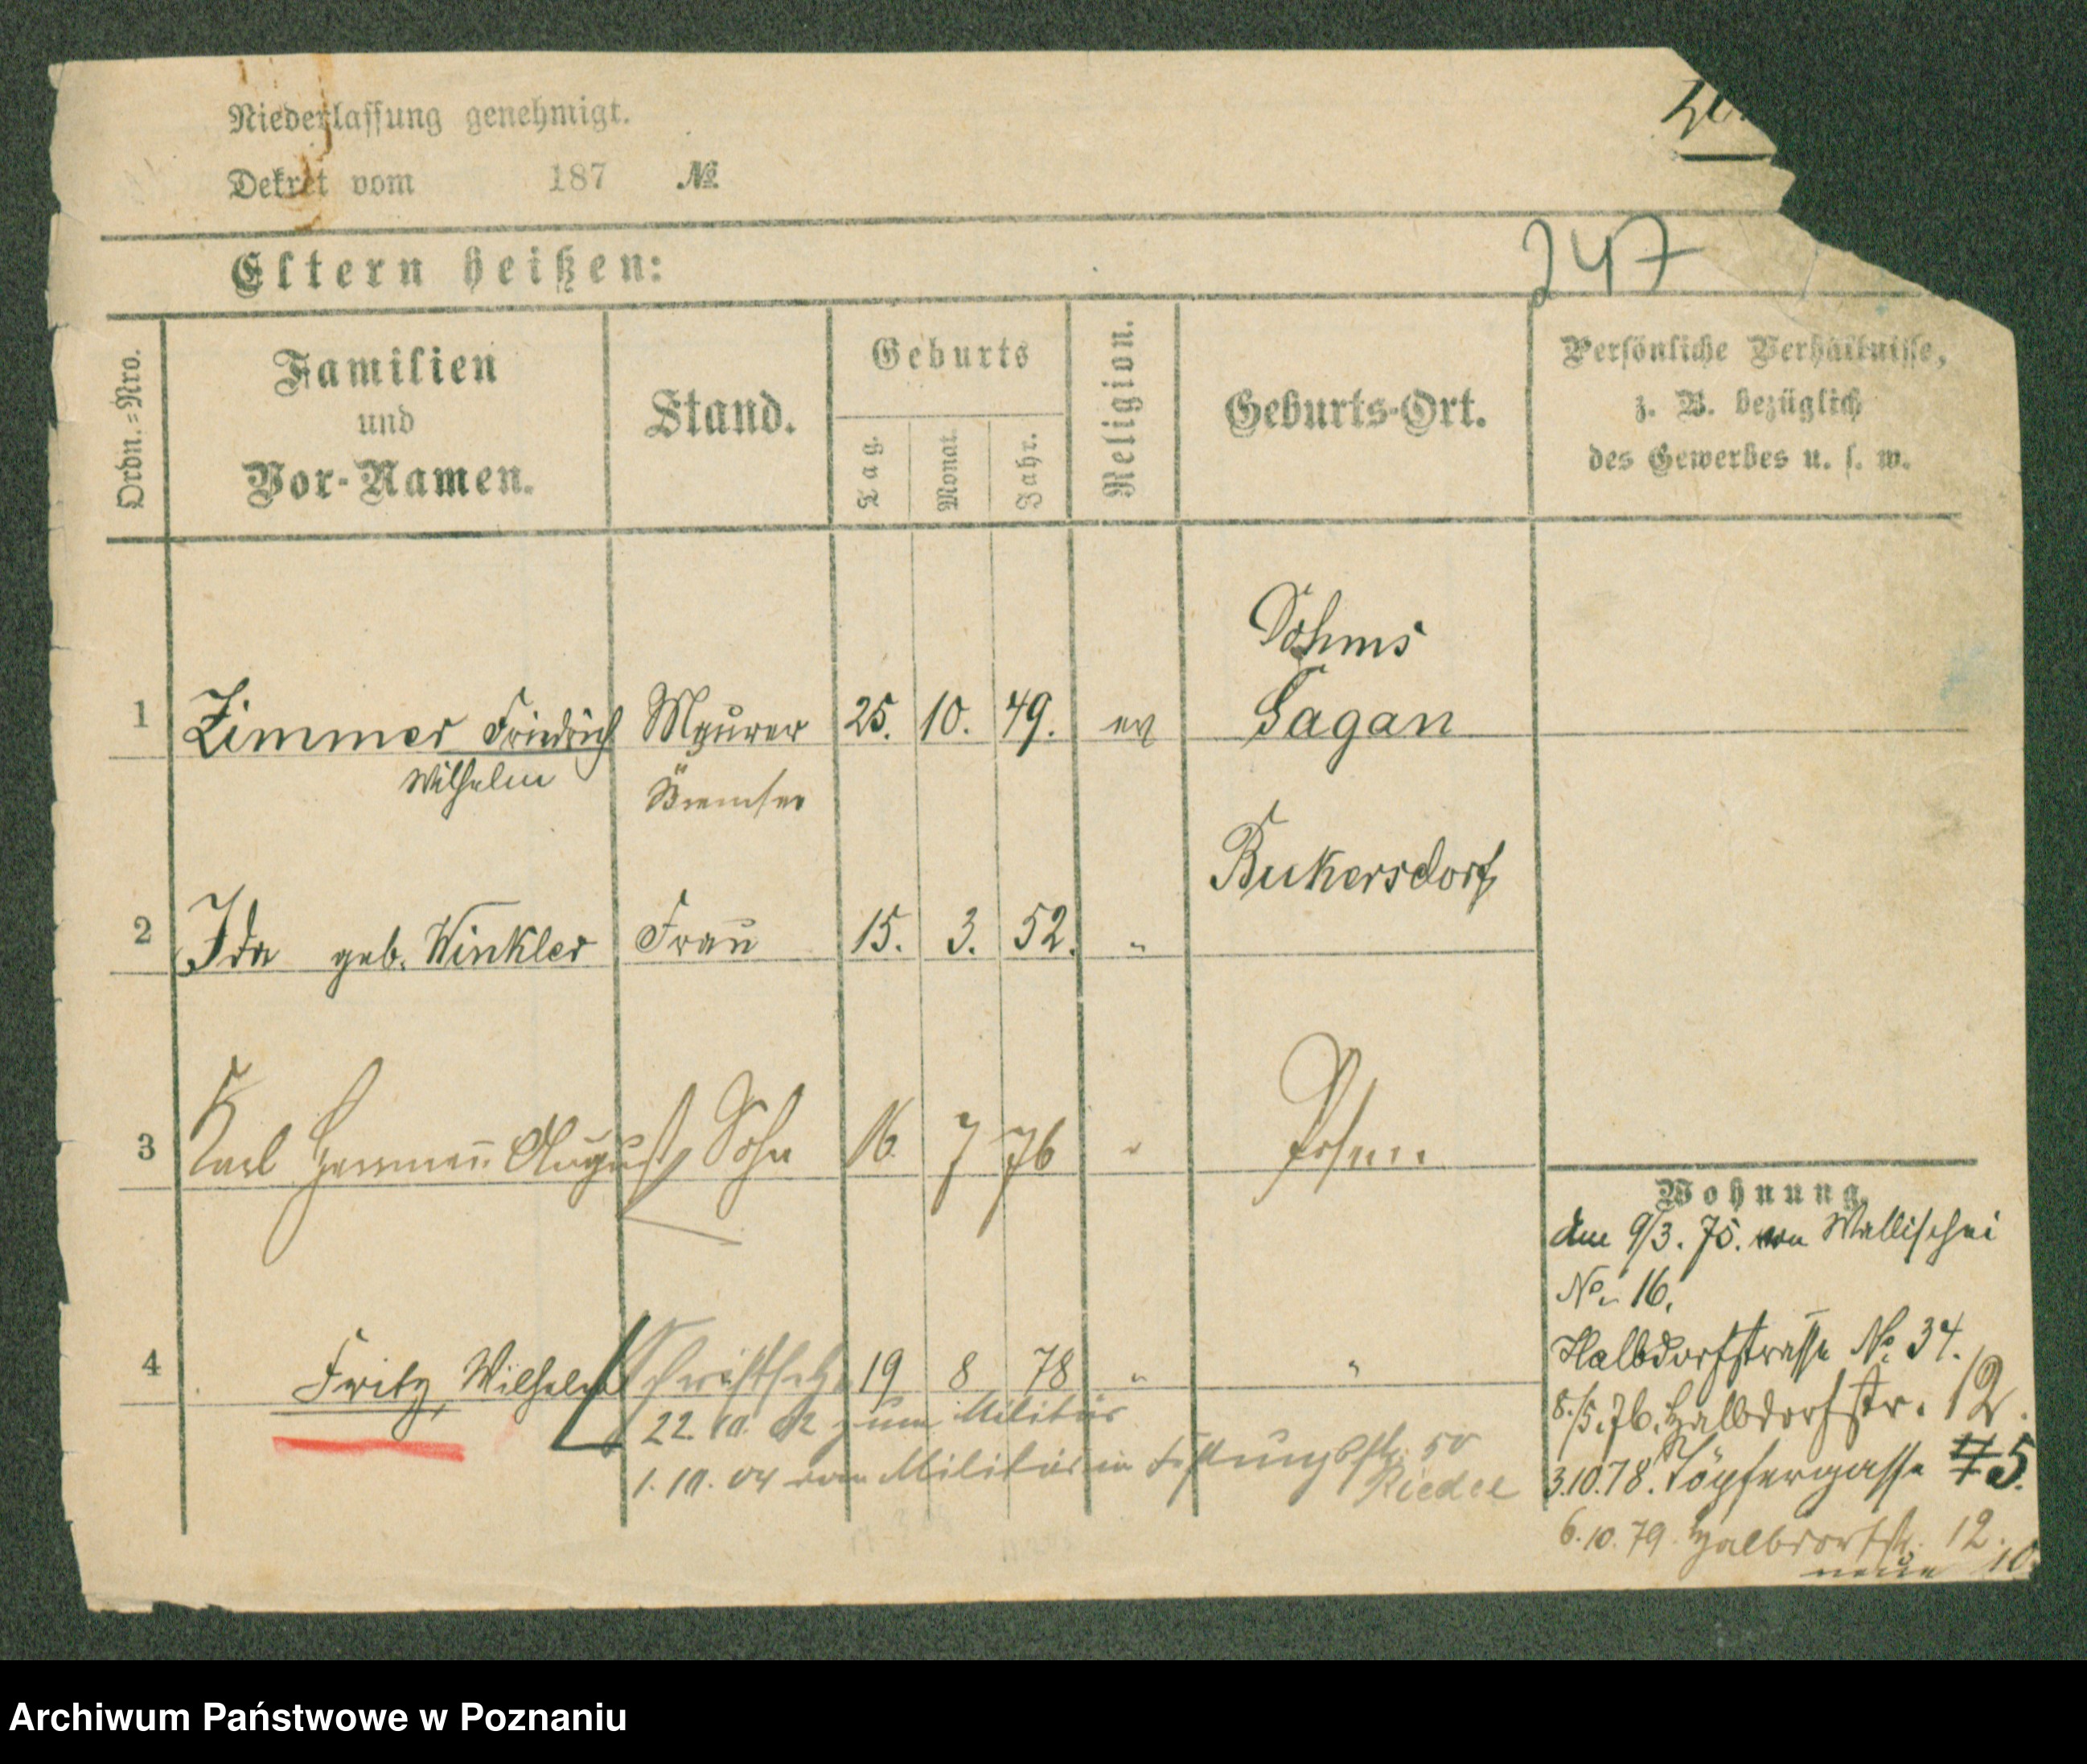 Niederlassung genehmigt.
Dekret vom 187 №
Eltern heißen:
247
Ordn.=Nro.
Familien
und
Vor-Namen.
Stand.
Geburts
Tag.
Monat.
Jahr.
Religion.
Geburts-Ort.
Persönliche Verhältnisse,
z. B. bezüglich
des Gewerbes u. s. w.
Dohms
1 Zimmer Friedrich Maurer 25. 10. 49. ev Sagan
Wilhelm Bremser
Buckersdorf
2 Ida geb. Winkler Frau 15. 3. 52. "
3 Karl Hermann August Sohn 16. 7 76 " Posen
4 Fritz, Wilhelm Schriftsetzer 19 8 78 " "
22.10.02 zum Militär
1.10.04 vom Militär in Festungsstr. 50
Riedel
Wohnung.
den 9/3. 75. von Wallischei
No. 16.
Halbdorfstrasse No. 34.
8./5.76. Halbdorfstr. 12.
3.10.78. Töpfergasse 5.
6.10.79. Halbdorfstr. 12.
neue 10.
Archiwum Państwowe w Poznaniu